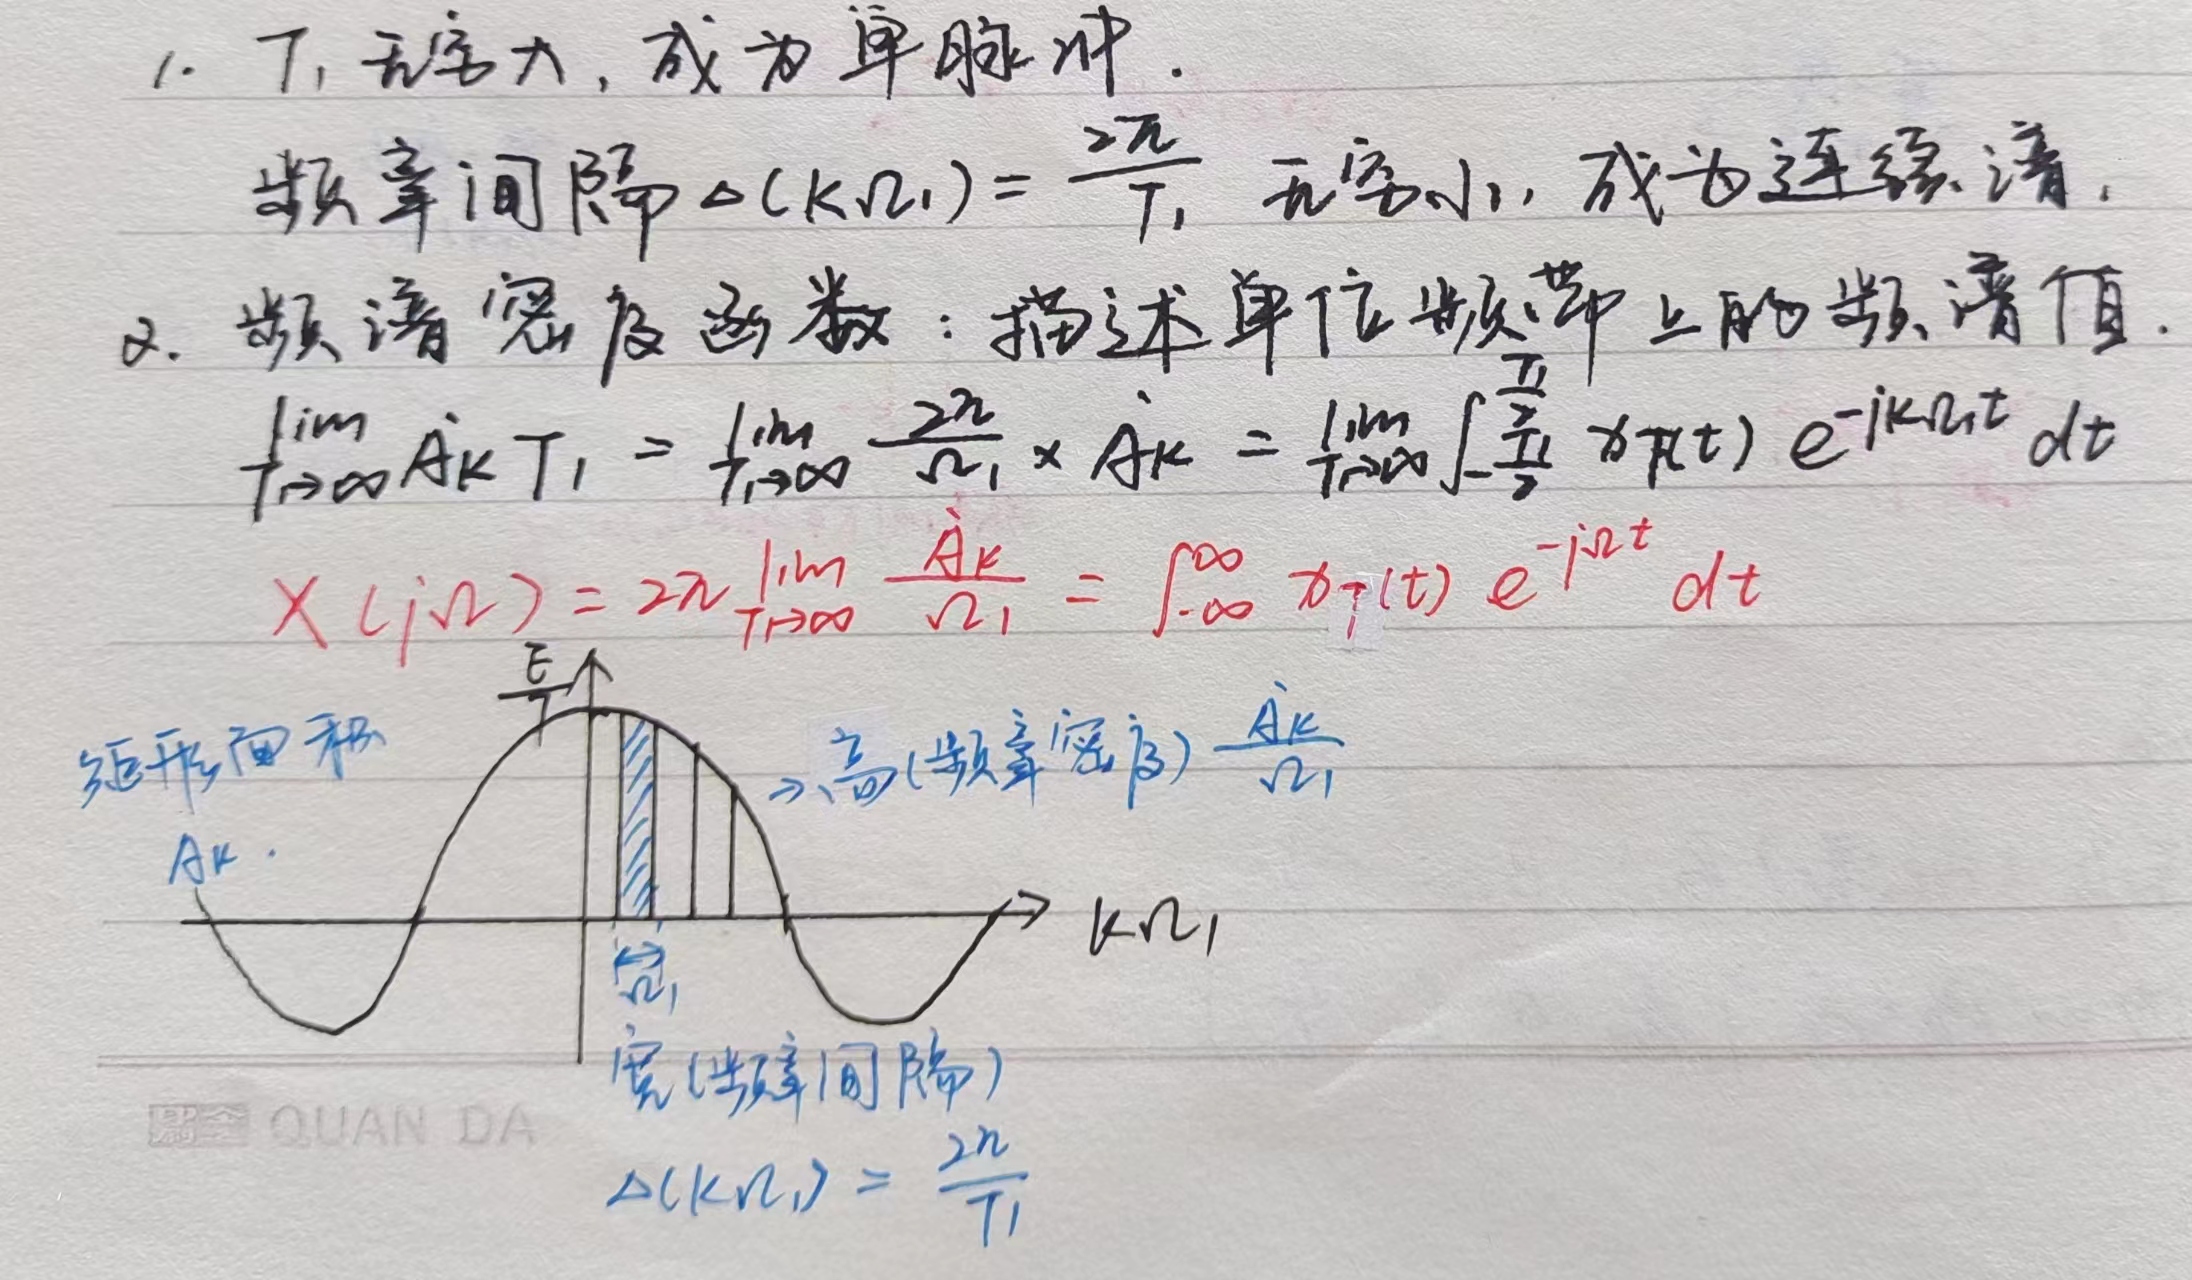 1. T₁ 无穷大，成为单脉冲.
频率间隔 Δ(KΩ₁) = 2π/T₁ 无穷小，成为连续谱.
2. 频谱密度函数：描述单位频带上的频谱值.
lim T₁→∞ Ȧ_K T₁ = lim T₁→∞ 2π/Ω₁ × Ȧ_K = lim T₁→∞ ∫_{-T₁/2}^{T₁/2} x_T(t) e^{-jKΩ₁t} dt
X(jΩ) = 2π lim T₁→∞ Ȧ_K/Ω₁ = ∫_{-∞}^{∞} x_T(t) e^{-jΩt} dt
矩形面积
A_K.
→高(频率密度) Ȧ_K/Ω₁
KΩ₁
Ω₁
宽(频率间隔)
Δ(KΩ₁) = 2π/T₁
QUAN DA